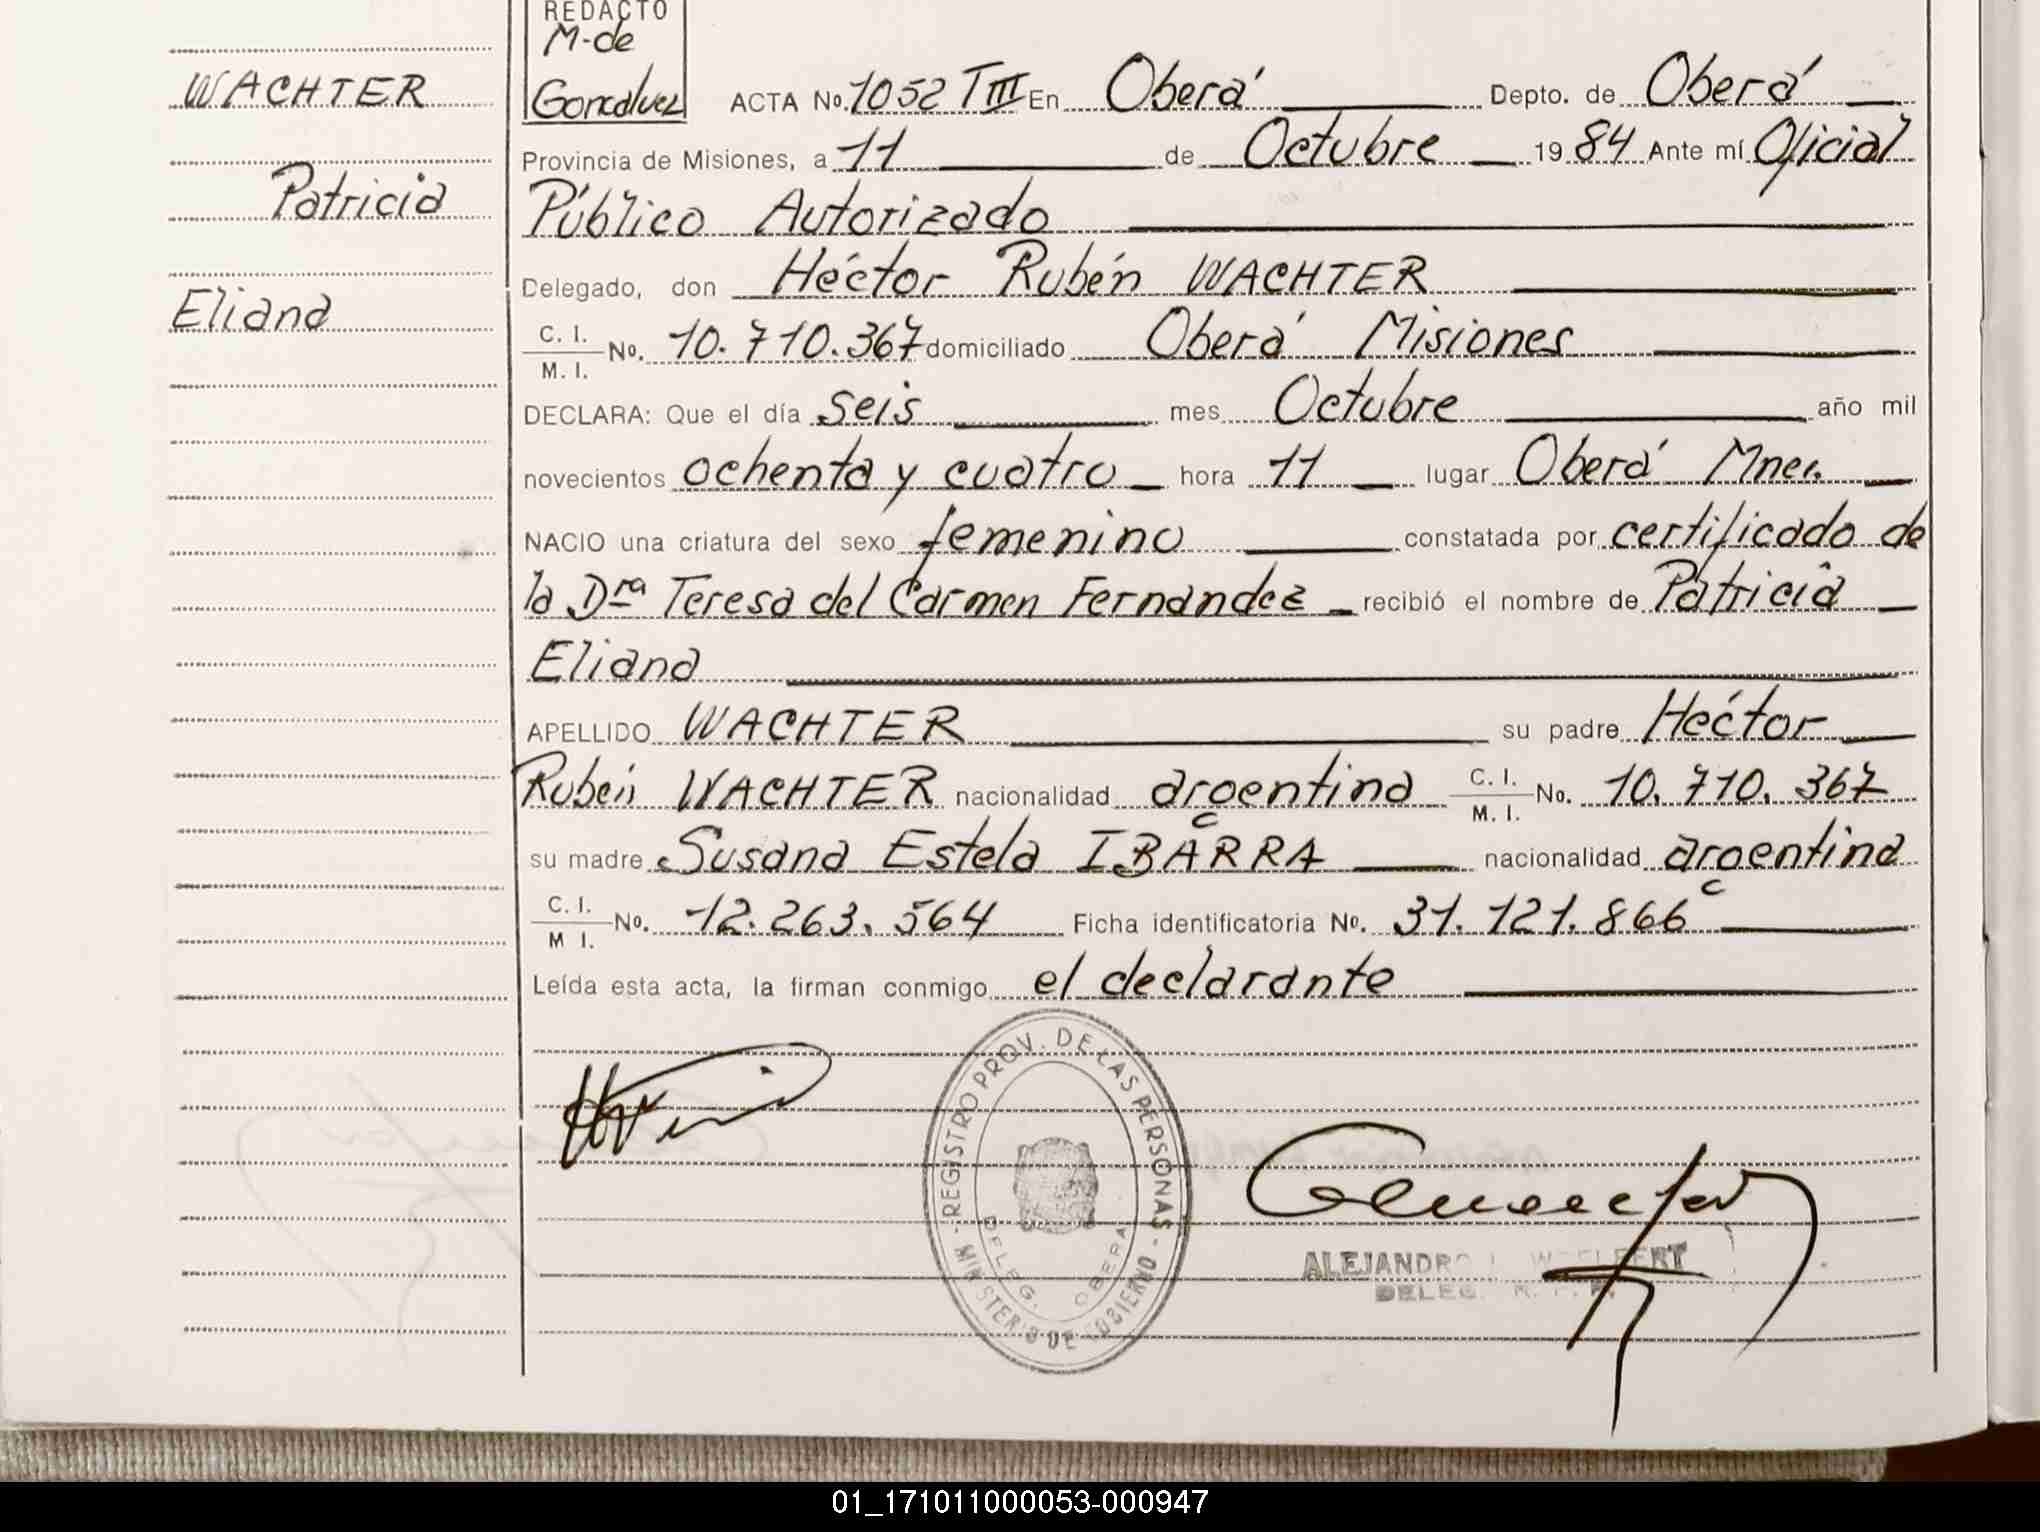 REDACTO
M. de
Goncalvez
WACHTER
Patricia
Eliana
ACTA No. 1052 TIII En Oberá Depto. de Oberá
Provincia de Misiones, a 11 de Octubre 1984 Ante mí Oficial
Público Autorizado
Delegado, don Héctor Rubén WACHTER
C. I.
M. I. No. 10.710.367 domiciliado Oberá Misiones
DECLARA: Que el día seis mes Octubre año mil
novecientos ochenta y cuatro hora 11 lugar Oberá Mnes.
NACIO una criatura del sexo femenino constatada por certificado de
la Dra Teresa del Carmen Fernandez recibió el nombre de Patricia
Eliana
APELLIDO WACHTER su padre Héctor
Rubén WACHTER nacionalidad argentina C. I. M. I. No. 10.710.367
su madre Susana Estela IBARRA nacionalidad argentina
C. I.
M I. No. 12.263.564 Ficha identificatoria No. 31.121.866
Leída esta acta, la firman conmigo el declarante
REGISTRO PROV. DE LAS PERSONAS - MINISTERIO DE GOBIERNO
DELEG. OBERA
ALEJANDRO
DELEG. R. P. P.
01_171011000053-000947